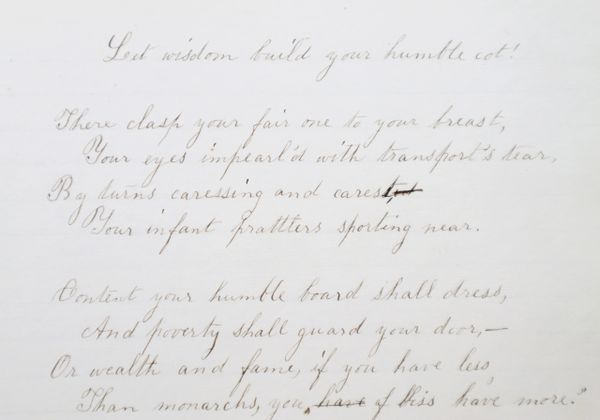 Let wisdom build your humble cot!
There clasp your fair one to your breast,
Your eyes impearl'd with transport's tear,
By turns caressing and carest,
Your infant prattlers sporting near.
Content your humble board shall dress,
And poverty shall guard your door,—
Of wealth and fame, if you have less
Than monarchs, you, have of bliss have more."